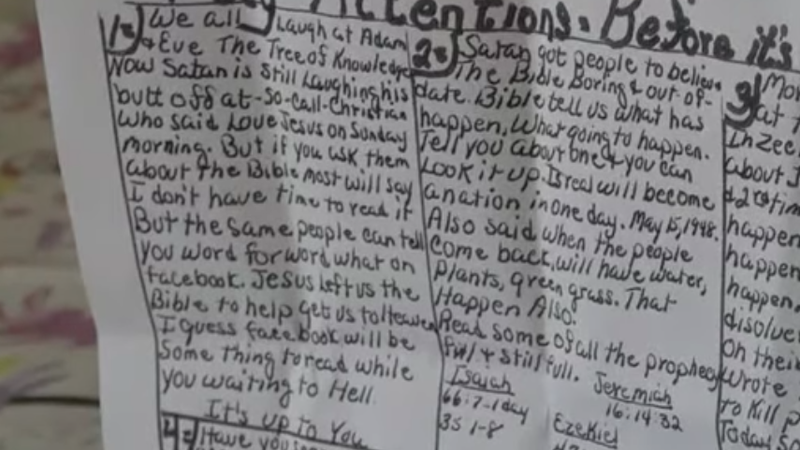 Attentions. Before it's
1=) We all Laugh at Adam
& Eve The Tree of Knowledge
Now Satan is Still Laughing his
butt off at-So-Call-Christian
Who said Love Jesus on Sunday
morning. But if you ask them
about the Bible most will say
I don't have time to read it
But the same people can tell
you word for word what on
facebook. Jesus left us the
Bible to help get us to Heaven
I guess facebook will be
Some thing to read while
you waiting to Hell.
It's up to You
2=) Satan got people to believe
The Bible Boring & out-of-
date. Bible tell us what has
happen, What going to happen.
Tell you about one & you can
Look it up. Isreal will become
a nation in one day. May 15, 1948.
Also said when the people
Come back, will have water,
Plants, green grass. That
Happen Also.
Read some of all the prophecy
full & still full.
Isaiah
66:7-1day
35 1-8
Jeremiah
16:14:32
Ezekiel
3)
at
about
happen
happen
happen.
disolve
on their
Wrote
to Kill
Today
4=) Have you